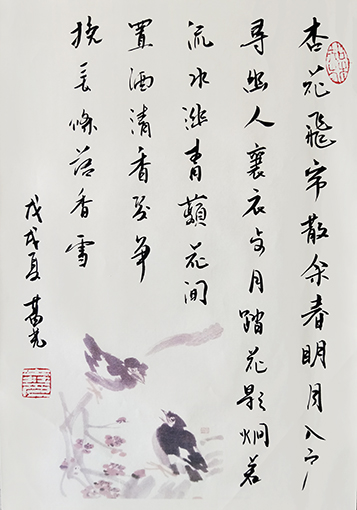 杏花飛帘散余春明月入户
尋幽人褰衣步月踏花影炯若
流水涵青蘋花间
置酒清香发争
挽長條落香雪
戊戌夏